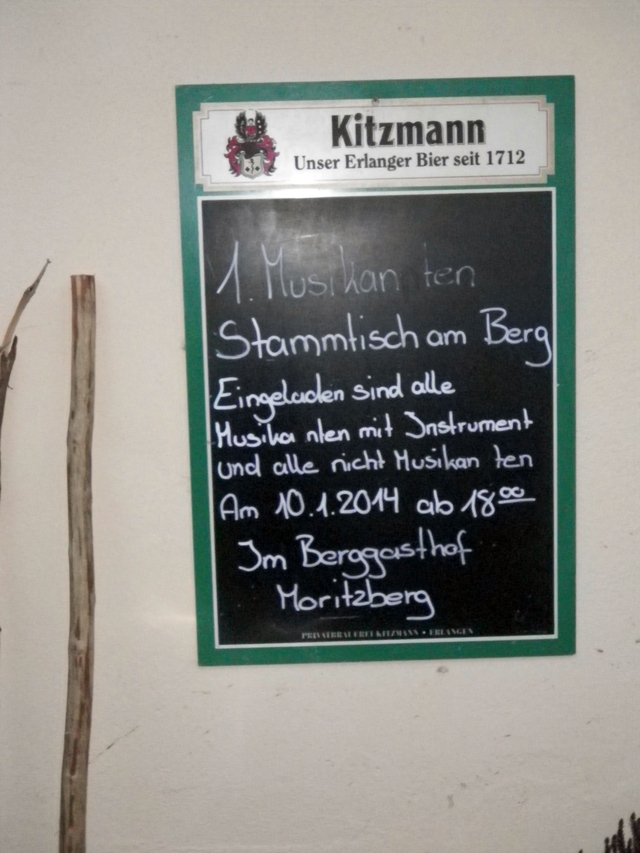 Kitzmann
Unser Erlanger Bier seit 1712
1. Musikanten
Stammtisch am Berg
Eingeladen sind alle
Musikanten mit Instrument
und alle nicht Musikanten
Am 10.1.2014 ab 18⁰⁰
Im Berggasthof
Moritzberg
PRIVATBRAUEREI KITZMANN • ERLANGEN